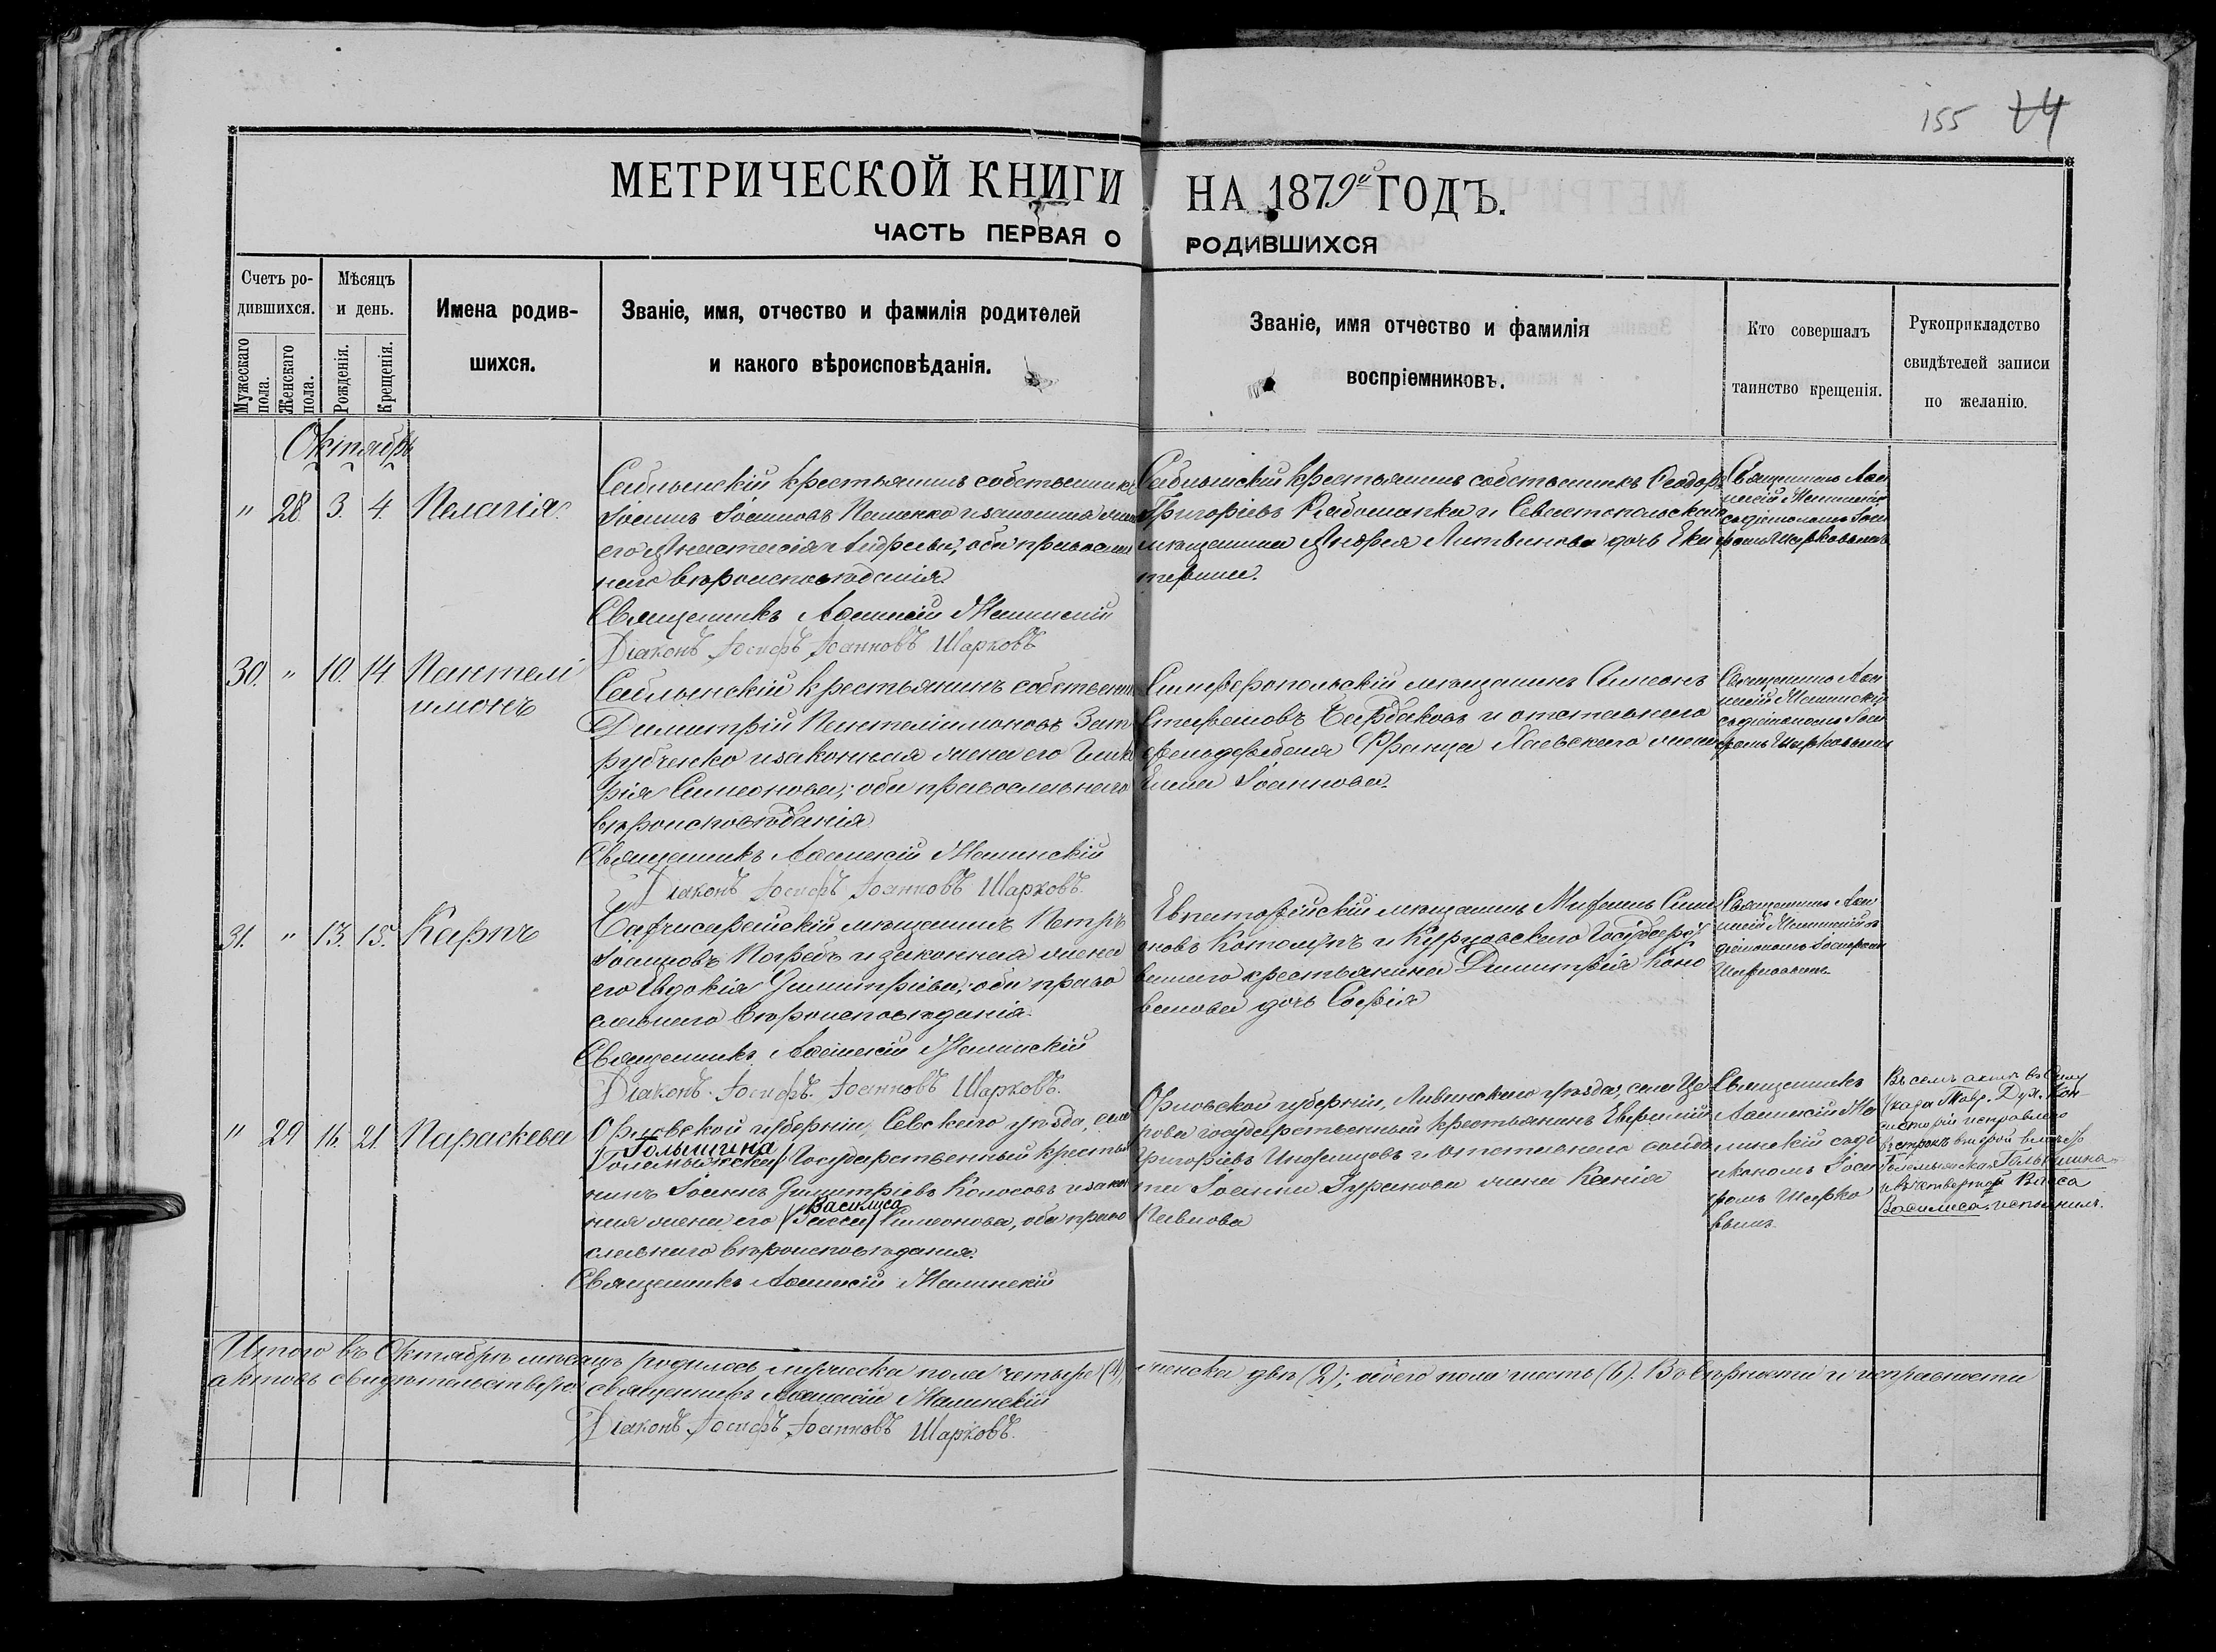 155 74
МЕТРИЧЕСКОЙ КНИГИ НА 1879й ГОДЪ.
ЧАСТЬ ПЕРВАЯ О РОДИВШИХСЯ
Счетъ ро-
дившихся.
Мужескаго пола.
Женскаго пола.
Мѣсяцъ
и день.
Рожденія.
Крещенія.
Имена родив-
шихся.
Званіе, имя, отчество и фамилія родителей
и какого вѣроисповѣданія.
Званіе, имя отчество и фамилія
воспріемниковъ.
Кто совершалъ
таинство крещенія.
Рукоприкладство
свидѣтелей записи
по желанію.
Октябрь
" 28 3. 4. Пелагія.
Саблынскій крестьянинъ собственникъ
Іоаннъ Іоанновъ и законная жена
его Анастасія Андреева, оба православ
наго вѣроисповѣданія.
Священникъ Жалинскій
Діаконъ Іосифъ Іоанновъ Шарковъ
Саблынскій крестьянинъ собственникъ Ѳеодоръ
Григорьевъ и Севастопольскаго
мѣщанина Андрея Литвинова дочь Ека
терина.
Священникъ
Жалинскій
съ діакономъ Іоси
фомъ Шарковымъ
30. " 10. 14 Пантелі
имонъ
Саблынскій крестьянинъ собственникъ
Димитрій Пантеліимоновъ
рубченко и законная жена его
рія Симеонова; оба православнаго
вѣроисповѣданія
Священникъ Жалинскій
Діаконъ Іосифъ Іоанновъ Шарковъ.
Симферопольскій мѣщанинъ Симеонъ
Стефановъ и отставнаго
фельдфебеля Франца жена
Іоаннова.
Священникъ
Жалинскій
съ діакономъ Іоси
фомъ Шарковымъ
31. " 13. 15. Карпъ
мѣщанинъ Петръ
Іоанновъ и законная жена
его Евдокія Димитріева; оба право
славнаго вѣроисповѣданія.
Священникъ Жалинскій
Діаконъ Іосифъ Іоанновъ Шарковъ.
Евпаторійскій мѣщанинъ
оновъ и Курцовскаго Государс
веннаго крестьянина Димитрія Коно
валова дочь Софія
Священникъ
Жалинскій съ
діакономъ Іосифомъ
Шарковымъ
" 29 16. 21. Параскева
Орловской губерніи, Севскаго уѣзда, села
Голышина
Государственный крестья
нинъ Іоаннъ Димитріевъ Колосовъ и закон
Василиса
ная жена его Симеонова, оба право
славнаго вѣроисповѣданія.
Священникъ Жалинскій
Орловской губерніи, Ливенскаго уѣзда, села
рова государственный крестьянинъ
Григорьевъ и отставнаго солда
та Іоанна жена Ксенія
Павлова
Священникъ
Жа
линскій съ ді
акономъ Іоси
фомъ Шарко
вымъ
Въ семъ актѣ въ силу
Указа Тавр. Дух. Кон
систоріи исправлено
въ строкѣ второй вмѣсто
Голышина
и въ четвертой
Василиса
Итого въ Октябрѣ мѣсяцѣ родилось мужеска пола четыре (4), женска двѣ (2); обоего пола шесть (6). Въ вѣрности и исправности
актовъ свидѣтельствуютъ священникъ Жалинскій
Діаконъ Іосифъ Іоанновъ Шарковъ.